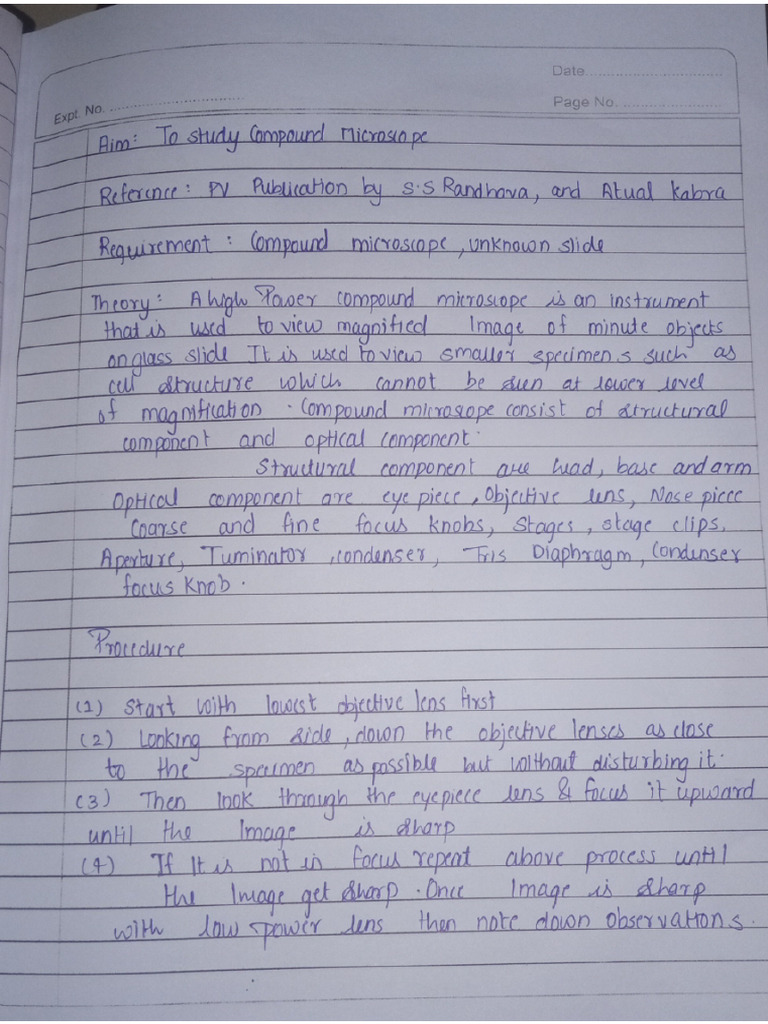 Date..................................
Expt. No. ..................................
Page No. ........................
Aim: To study Compound Microscope
Reference: PV Publication by S.S Randhava, and Atual Kabra
Requirement: Compound microscope, unknown slide
Theory: A high Power compound microscope is an instrument
that is used to view magnified Image of minute objects
on glass slide It is used to view smaller specimens such as
cell structure which cannot be seen at lower level
of magnification. Compound microscope consist of structural
component and optical component.
Structural component are head, base and arm
Optical component are eye piece, Objective lens, Nose piece
Coarse and fine focus knobs, Stages, stage clips,
Aperture, Tuminator, condenser, Iris Diaphragm, Condenser
focus Knob.
Procedure
(1) Start with lowest objective lens first
(2) Looking from side, down the objective lenses as close
to the specimen as possible but without disturbing it.
(3) Then look through the eyepiece lens & focus it upward
until the Image is sharp
(4) If It is not in focus repeat above process until
the Image get sharp. Once Image is sharp
with low power lens then note down observations.